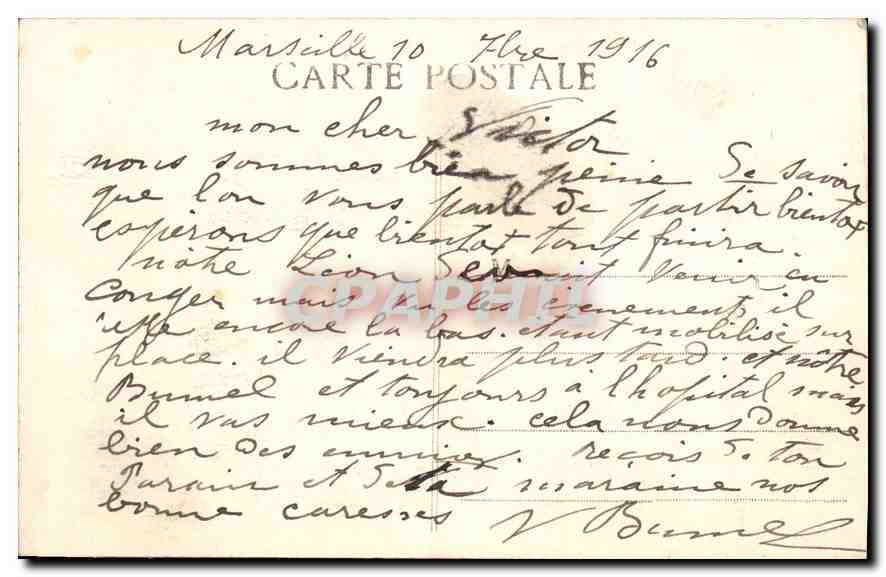 Marseille 10 7bre 1916
CARTE POSTALE
mon cher Victor
nous sommes bien peine de savoir
que lon vous parle de partir bientot
espérons que bientot tout finira
nôtre Léon devait venir en
conger mais vu les évènements il
reste encore la bas. étant mobilisé sur
place. il viendra plus tard. et nôtre
Bumel et toujours à lhopital mais
il vas mieux. cela nous donne
bien des ennuies. recois de ton
Parain et de ta maraine nos
bonne caresses V Bumel
CPAPHIL